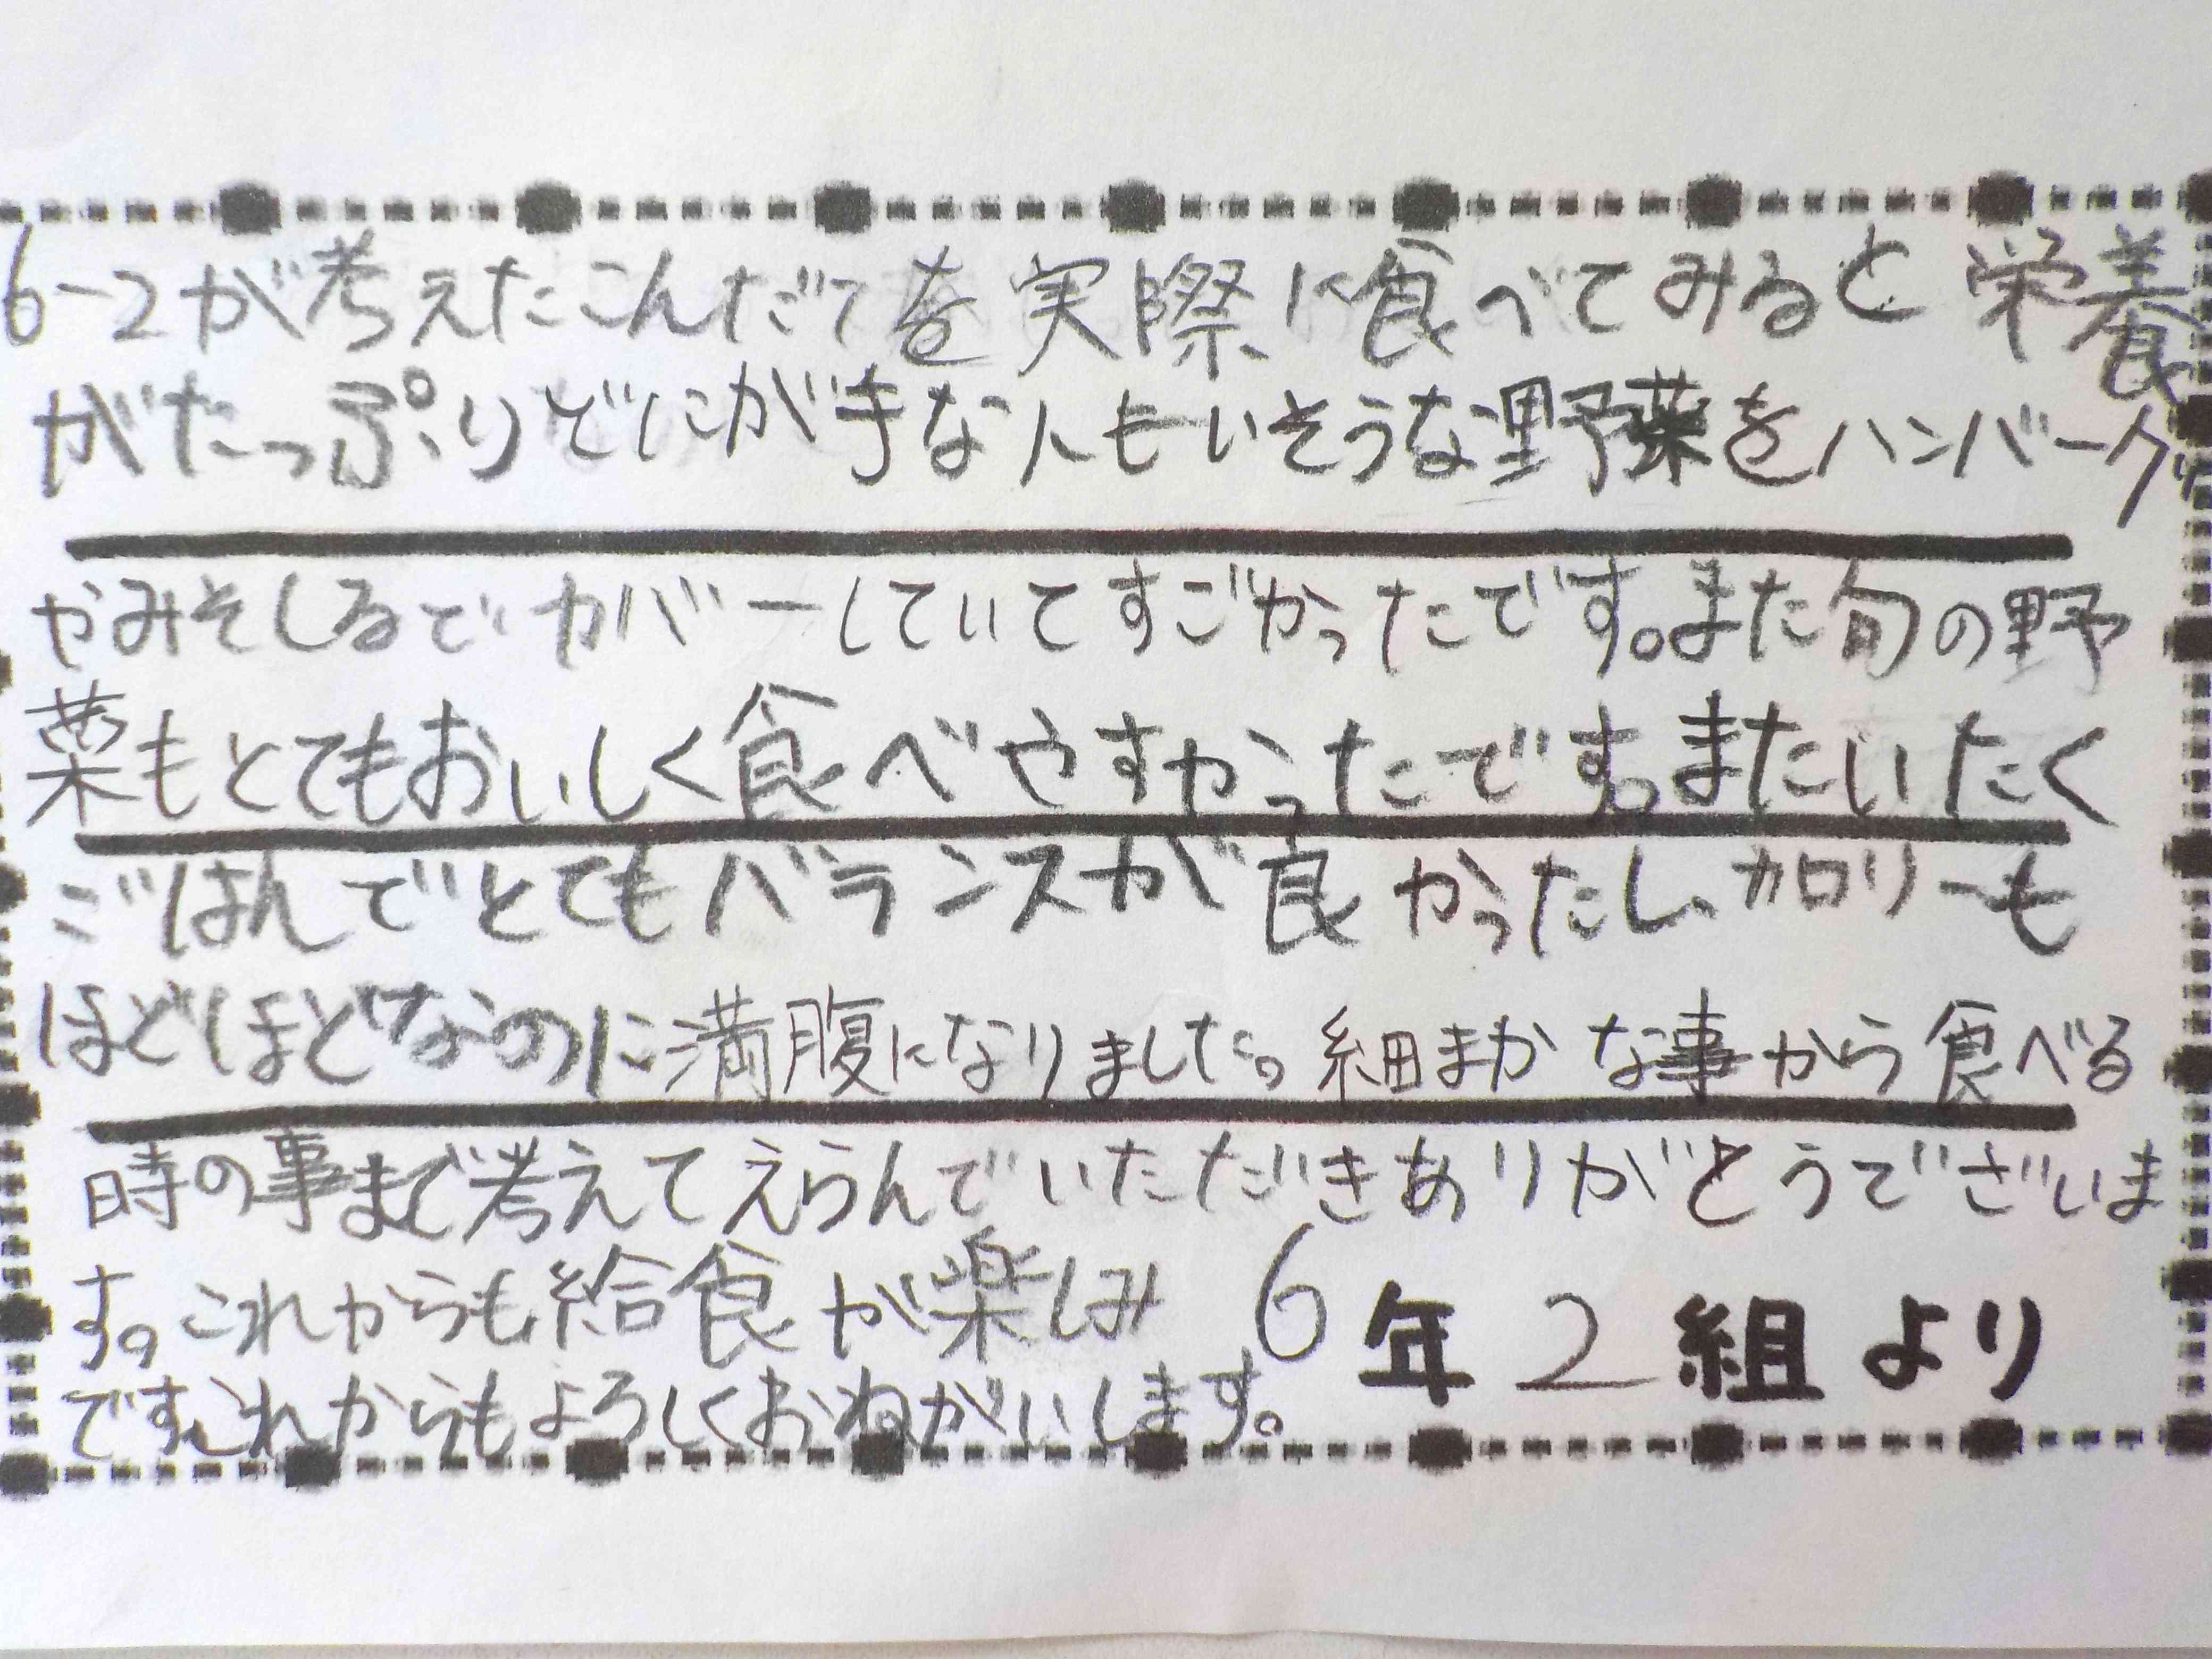 6-2が考えたこんだてを実際に食べてみると栄養
がたっぷりでにが手な人もいそうな野菜をハンバーグ
やみそしるでカバーしていてすごかったです。また旬の野
菜もとてもおいしく食べやすかったです。またいたく
ごはんでとてもバランスが良かったし、カロリーも
ほどほどなのに満腹になりました。細まかな事から食べる
時の事まで考えてえらんでいただきありがとうございま
す。これからも給食が楽しみ
です。これからもよろしくおねがいします。
6年2組より